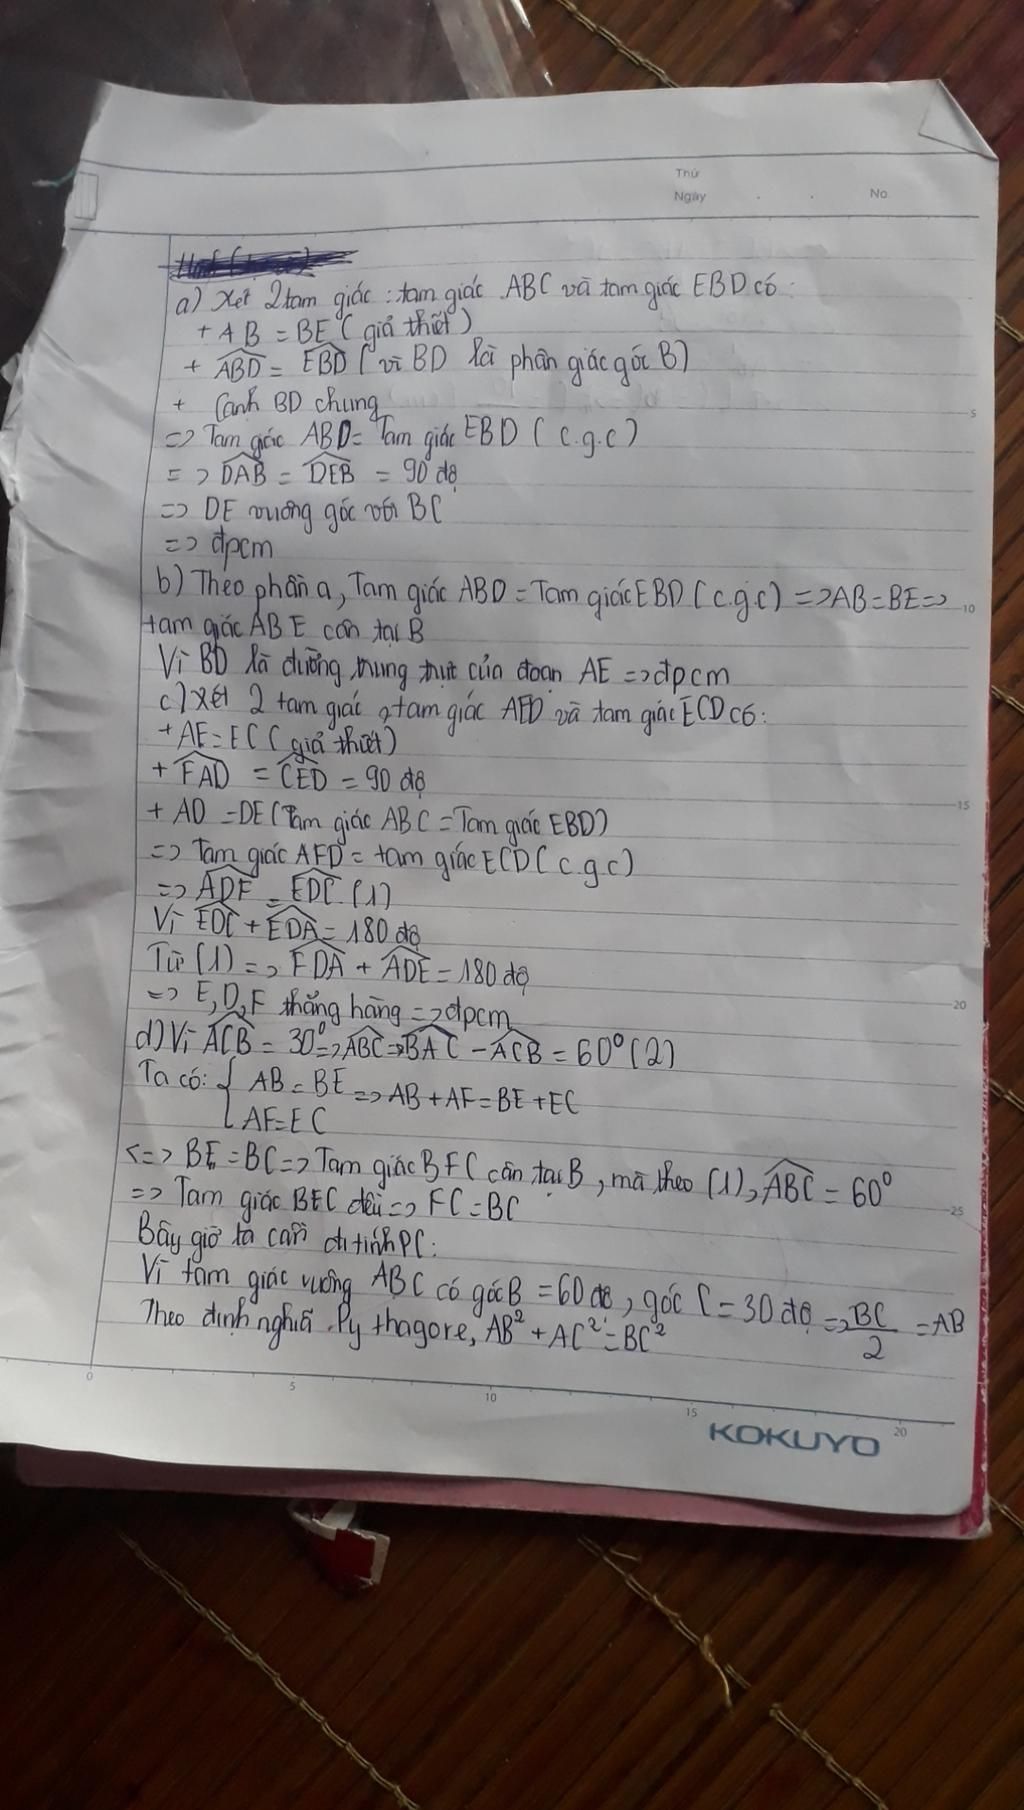 Thứ
Ngày
No.
a) Xét 2 tam giác : tam giác ABC và tam giác EBD có :
+ AB = BE ( giả thiết )
+ ABD = EBD ( vì BD là phân giác góc B )
+ Cạnh BD chung
=> Tam giác ABD = Tam giác EBD ( c.g.c )
=> DAB = DEB = 90 độ
=> DE vuông góc với BC
=> đpcm
b) Theo phần a, Tam giác ABD = Tam giác EBD ( c.g.c ) => AB = BE =>
tam giác ABE cân tại B
Vì BD là đường trung trực của đoạn AE => đpcm
c) Xét 2 tam giác , tam giác AFD và tam giác ECD có :
+ AF = EC ( giả thiết )
+ FAD = CED = 90 độ
+ AD = DE ( Tam giác ABC = Tam giác EBD )
=> Tam giác AFD = tam giác ECD ( c.g.c )
=> ADF = EDC (1)
Vì EDC + EDA = 180 độ
Từ (1) => FDA + ADE = 180 độ
=> E, D, F thẳng hàng => đpcm
d) Vì ACB = 30⁰ => ABC => BAC - ACB = 60⁰ (2)
Ta có: { AB = BE => AB + AF = BE + EC
AF = EC
<=> BF = BC => Tam giác BFC cân tại B , mà theo (1), ABC = 60⁰
=> Tam giác BFC đều => FC = BC
Bây giờ ta cần đi tính PC :
Vì tam giác vuông ABC có góc B = 60 độ , góc C = 30 độ => BC/2 = AB
Theo định nghĩa Pythagore, AB² + AC² = BC²
5
10
15
20
25
0 5 10 15 20
KOKUYO